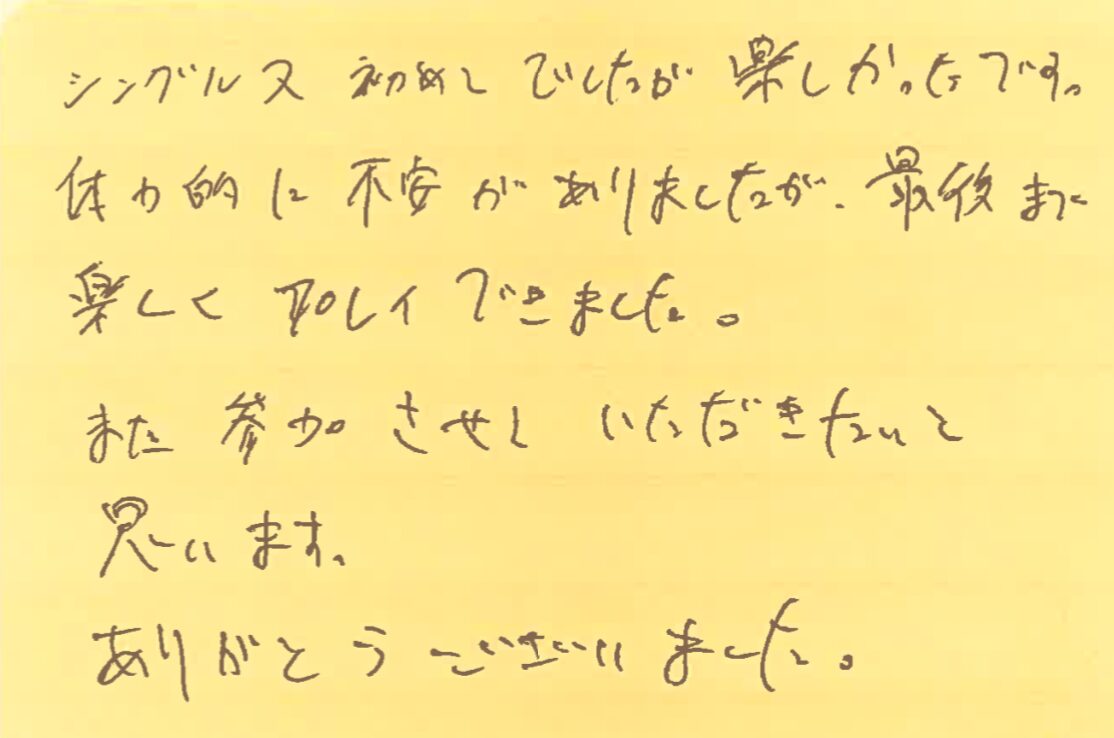 シングルス 初めてでしたが 楽しかったです。
体力的に 不安が ありましたが、最後まで
楽しく プレイ できました。
また 参加 させて いただきたいと
思います。
ありがとう ございました。